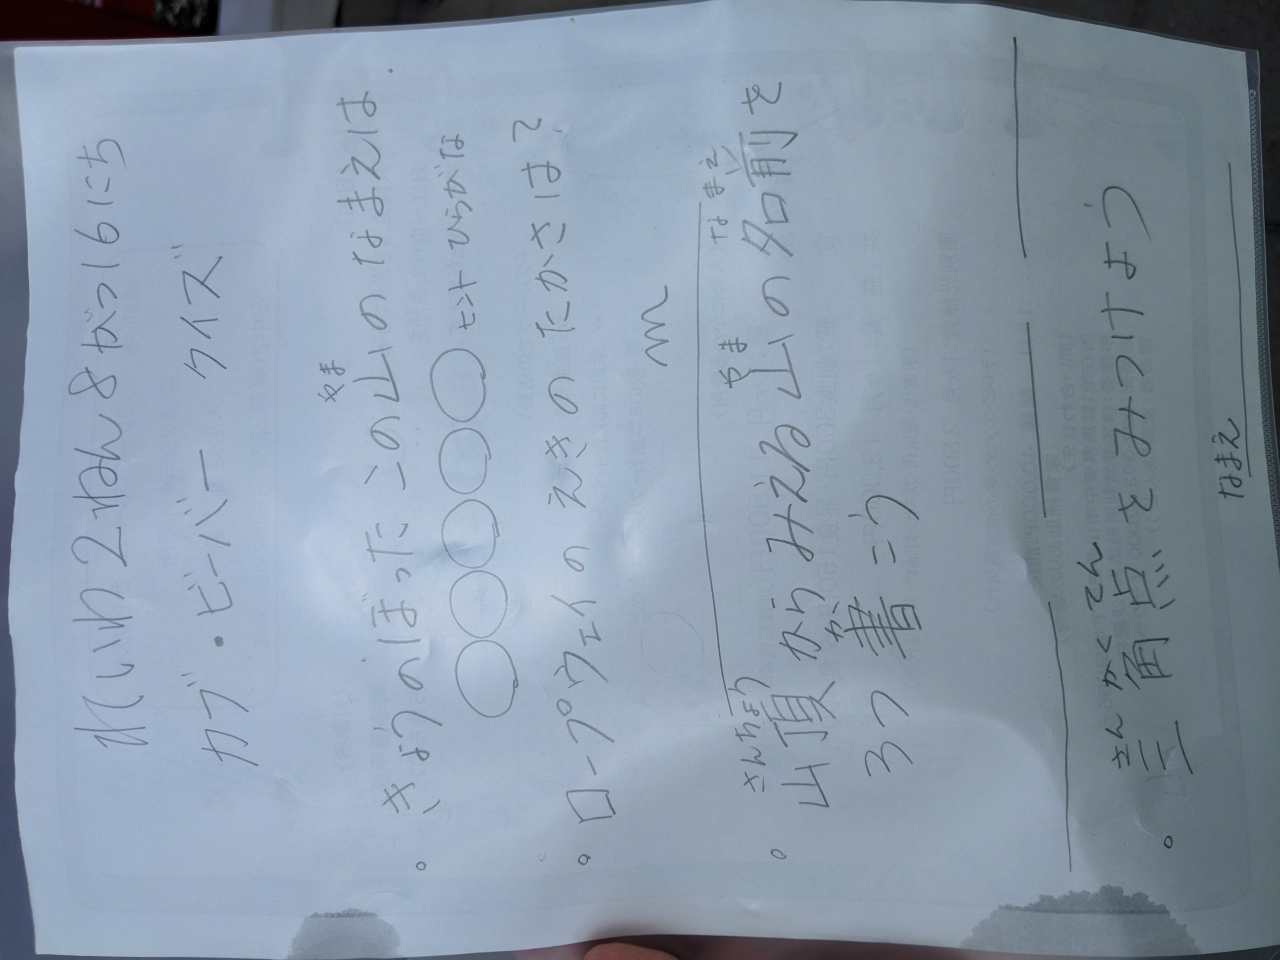 れいわ2ねん8がつ16にち
カブ・ビーバー クイズ
。きょうのぼったこの山のなまえは
やま
○○○○○ ヒント ひらがな
。ロープウェイのえきのたかさは?
m
さんちょう やま なまえ
。山頂からみえる山の名前を
か
3つ書こう
さんかくてん
。三角点をみつけよう
なまえ